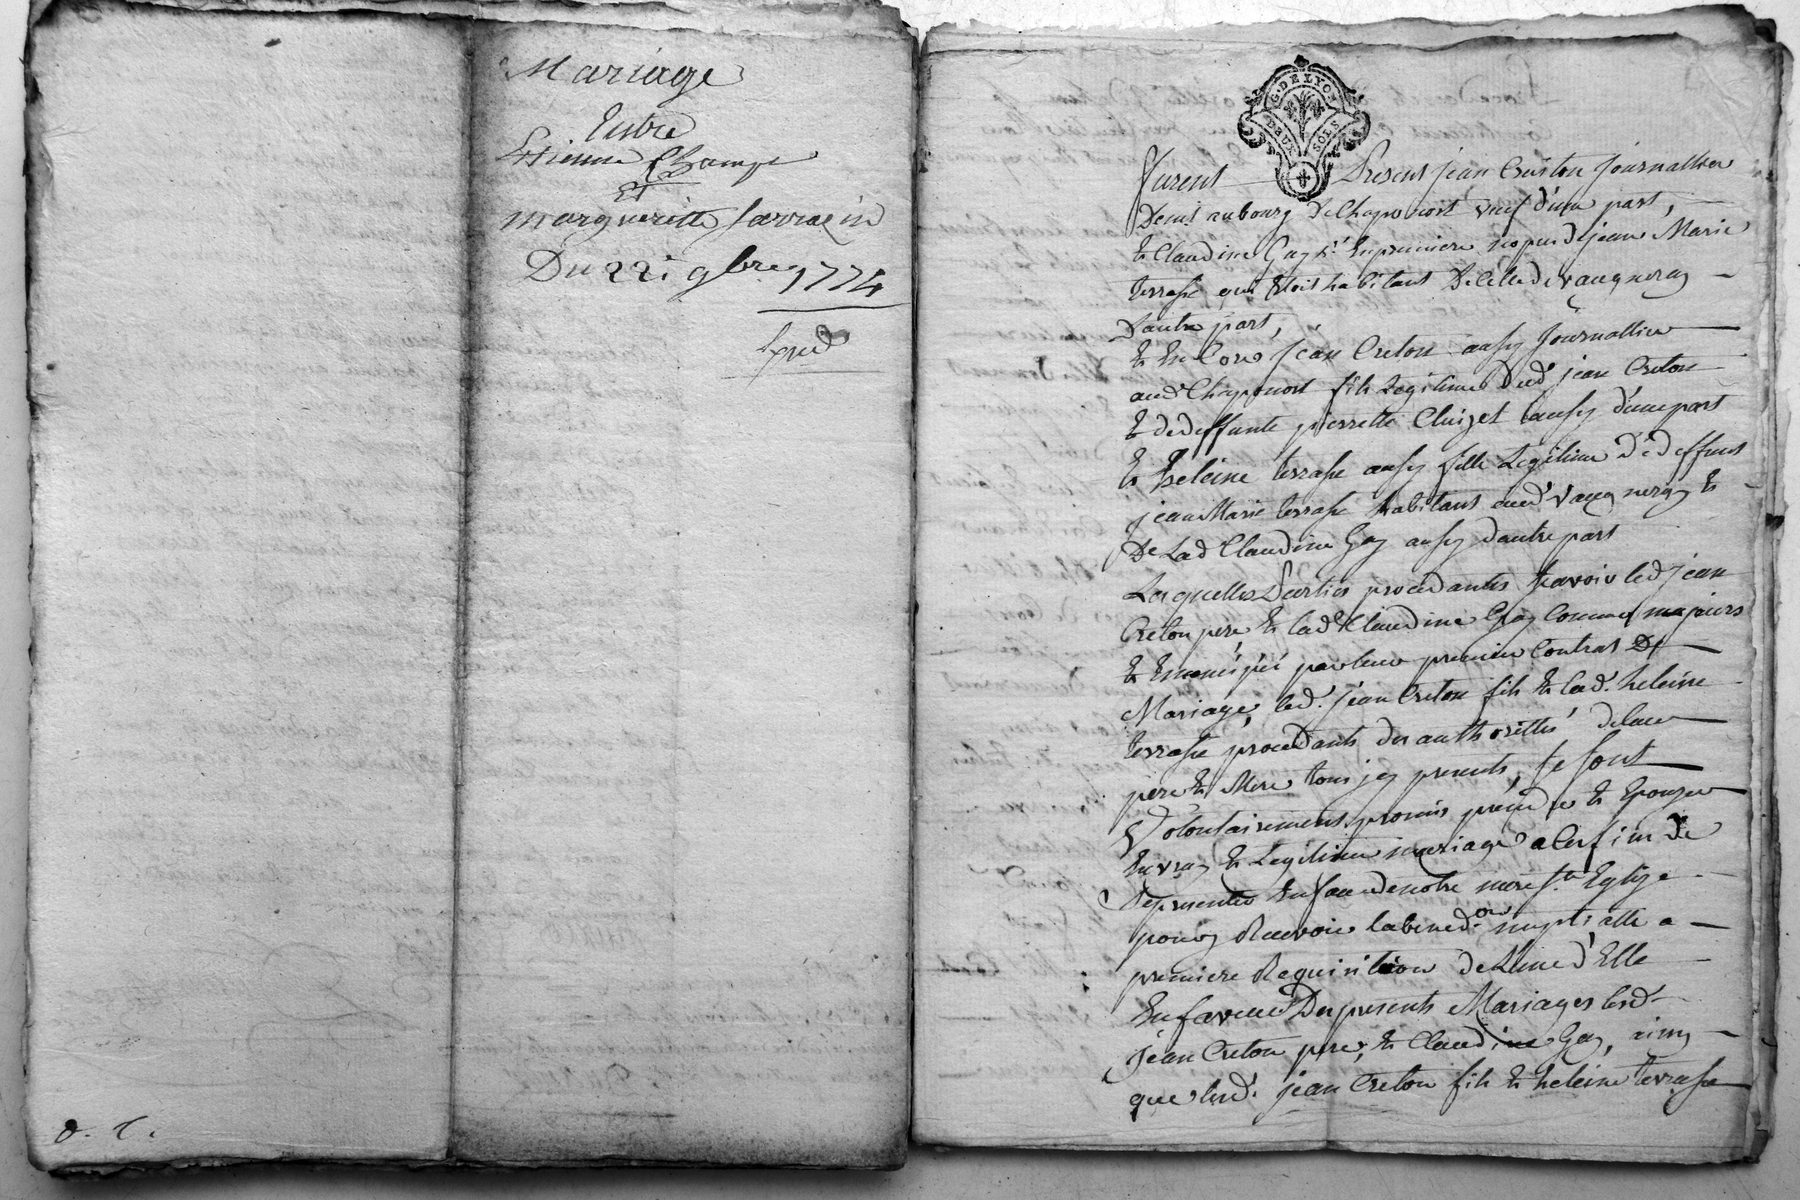 Mariage
Entre
Estienne Champ
ET
margueritte Sarrazin
Du 22i 9bre 1774
Exped
d. C.
G. DE LYON
DEUX SOLS
Furent Presens jean Creston journallier
Demt au bourg de Chaponost veuf d'une part,
Et Claudine Gay Vve En premiere nopces de jean Marie
terrasse quand vivoit habitant De Celle de vaugneray
D'autre part,
Et En Core jean Creton aussy journallier
aud Chaponost fils Legitime Dud jean Creton
Et de deffunte pierrette Cluizet aussy d'une part
Et heleine terrasse aussy fille Legitime De deffunt
jean Marie terrasse habitant aud vaugneray Et
De Lad Claudine Gay aussy d'autre part
Lesquelles Parties procedantes savoir led jean
Creton pere Et lad Claudine Gay Comme majeurs
Et Emancipés par leur premier Contrat De
Mariage, led. jean Creton fils Et lad. heleine
terrasse procedants des authorittés de leur
pere Et Mere tous jcy presents, se sont
Volontairement promis prendre Et Epouzer
En vray Et Legitime mariage a Ces fin de
se presenter En face de notre mere Ste Eglize
pour y Recevoir la bened.on nuptialle a
premiere Requisition De L'une d'Elle
En faveur Des presents Mariages lesd
jean Creton pere, Et Claudine Gay, ainsy
que lesd. jean Creton fils Et heleine terrasse